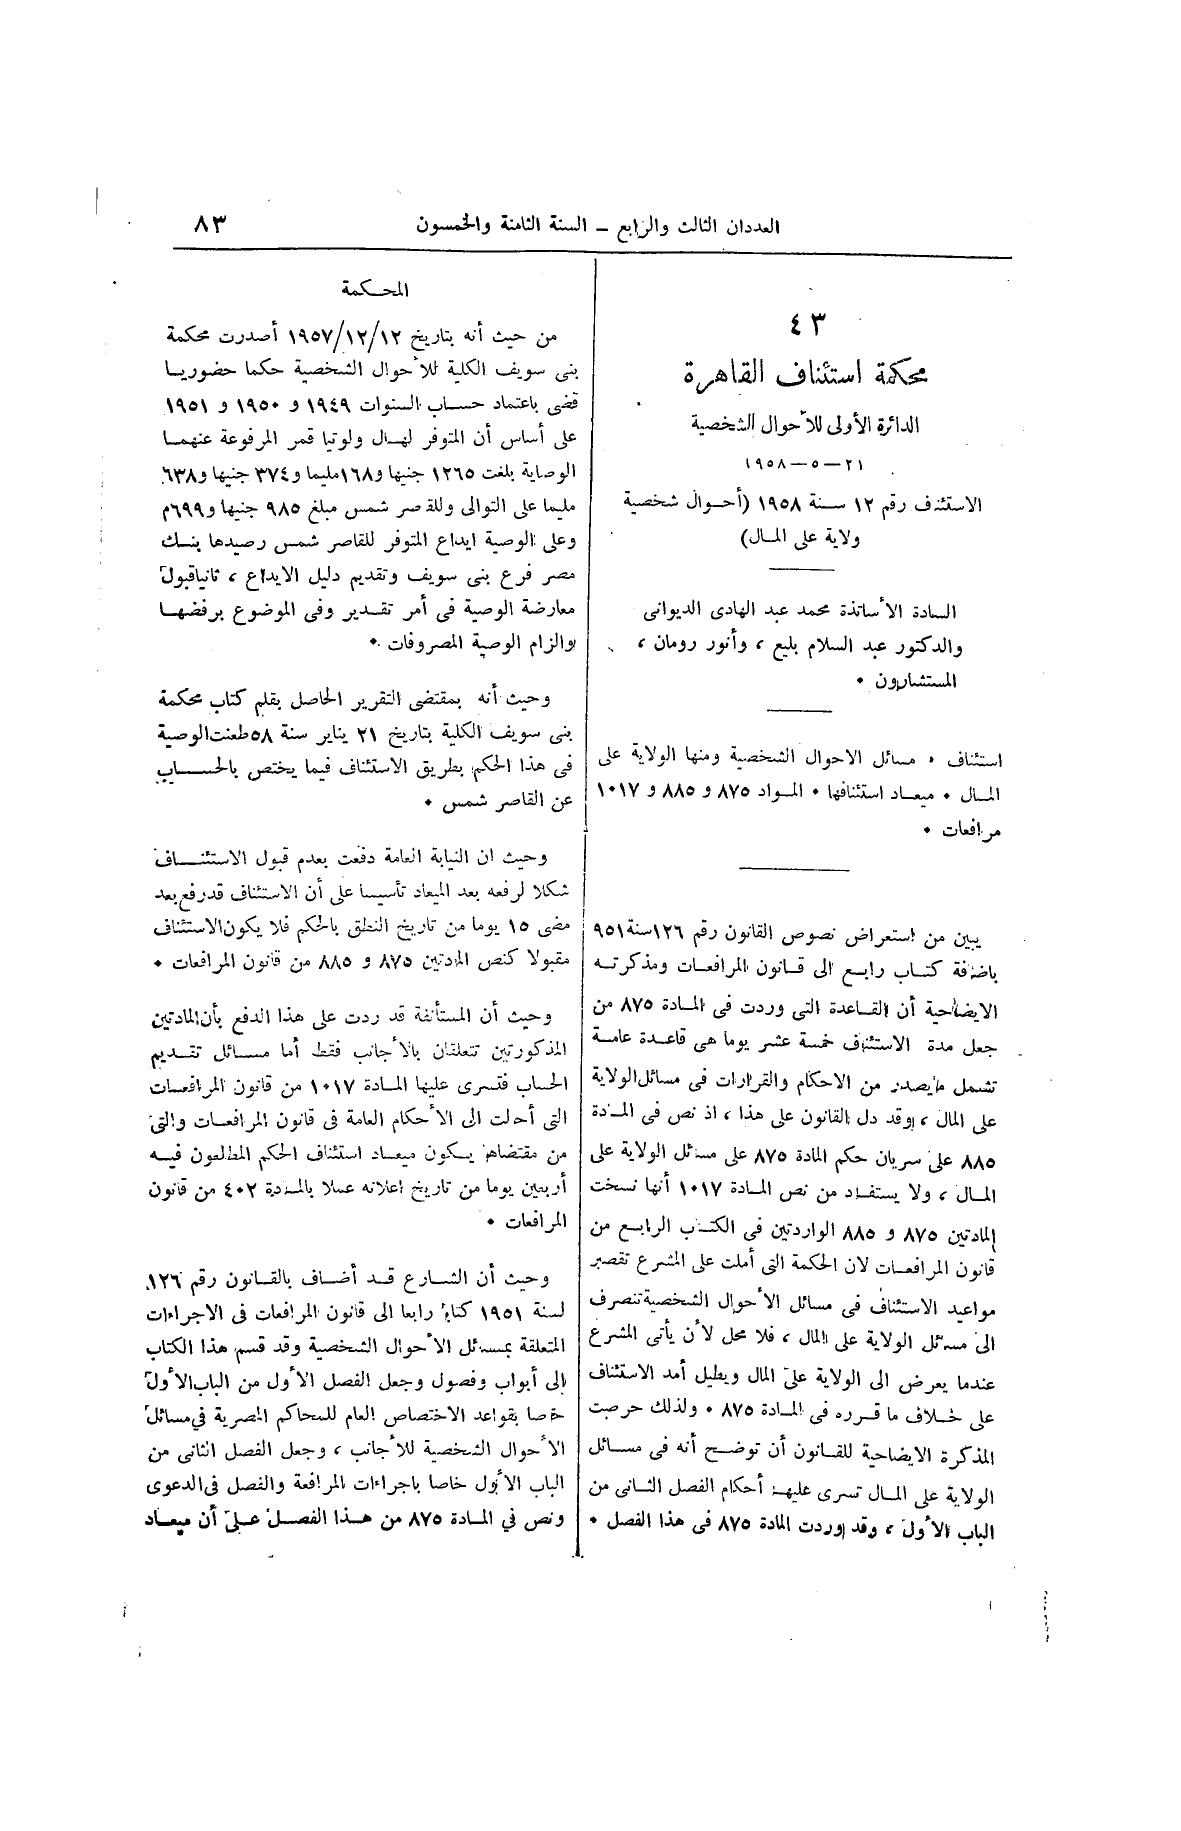 العددان الثالث والرابع – السنة الثامنة والخمسون
٨٣
٤٣
محكمة استئناف القاهرة
الدائرة الأولى للأحوال الشخصية
٢١ – ٥ – ١٩٥٨
الاستئنف رقم ١٢ سنة ١٩٥٨ (أحوال شخصية
ولاية على المال)
السادة الأساتذة محمد عبد الهادى الديوانى
والدكتور عبد السلام بلبع ، وأنور رومان ،
المستشارون •
استئناف • مسائل الاحوال الشخصية ومنها الولاية على
المال • ميعاد استئنافها • المواد ٨٧٥ و ٨٨٥ و ١٠١٧
مرافعات •
يبين من استعراض نصوص القانون رقم ١٢٦سنة٩٥١
باضافة كتاب رابع الى قانون المرافعات ومذكرته
الايضاحية أن القاعدة التى وردت فى المادة ٨٧٥ من
جعل مدة الاستئناف خمسة عشر يوما هى قاعدة عامة
تشمل مايصدر من الاحكام والقرارات فى مسائل الولاية
على المال ، وقد دل القانون على هذا ، اذ نص فى المادة
٨٨٥ على سريان حكم المادة ٨٧٥ على مسائل الولاية على
المال ، ولا يستفاد من نص المادة ١٠١٧ أنها نسخت
المادتين ٨٧٥ و ٨٨٥ الواردتين فى الكتاب الرابع من
قانون المرافعات لان الحكمة التى أملت على المشرع تقصير
مواعيد الاستئناف فى مسائل الأحوال الشخصية تنصرف
الى مسائل الولاية على المال ، فلا محل لأن يأتى المشرع
عندما يعرض الى الولاية على المال ويطيل أمد الاستئناف
على خلاف ما قرره فى المادة ٨٧٥ • ولذلك حرصت
المذكرة الايضاحية للقانون أن توضح أنه فى مسائل
الولاية على المال تسرى عليها أحكام الفصل الثانى من
الباب الأول ، وقد وردت المادة ٨٧٥ فى هذا الفصل •
المحكمة
من حيث أنه بتاريخ ١٩٥٧/١٢/١٢ أصدرت محكمة
بنى سويف الكلية للأحوال الشخصية حكما حضوريا
قضى باعتماد حساب السنوات ١٩٤٩ و ١٩٥٠ و ١٩٥١
على أساس أن المتوفر لهال ولوتيا قمر المرفوعة عنهما
الوصاية بلغت ١٢٦٥ جنيها و١٦٨مليما و٣٧٤ جنيها و٦٣٨
مليما على التوالى وللقاصر شمس مبلغ ٩٨٥ جنيها و٦٩٩م
وعلى الوصية ايداع المتوفر للقاصر شمس رصيدها بنك
مصر فرع بنى سويف وتقديم دليل الايداع ، ثانياقبول
معارضة الوصية فى أمر تقدير وفى الموضوع برفضها
والزام الوصية المصروفات •
وحيث أنه بمقتضى التقرير الحاصل بقلم كتاب محكمة
بنى سويف الكلية بتاريخ ٢١ يناير سنة ٥٨ طعنت الوصية
فى هذا الحكم بطريق الاستئناف فيما يختص بالحساب
عن القاصر شمس •
وحيث ان النيابة العامة دفعت بعدم قبول الاستئناف
شكلا لرفعه بعد الميعاد تأسيسا على أن الاستئناف قدرفع بعد
مضى ١٥ يوما من تاريخ النطق بالحكم فلا يكون الاستئناف
مقبولا كنص المادتين ٨٧٥ و ٨٨٥ من قانون المرافعات •
وحيث أن المستأنفة قد ردت على هذا الدفع بأن المادتين
المذكورتين تتعلقان بالأجانب فقط أما مسائل تقديم
الحساب فتسرى عليها المادة ١٠١٧ من قانون المرافعات
التى أحالت الى الأحكام العامة فى قانون المرافعات والتى
من مقتضاها يكون ميعاد استئناف الحكم المطعون فيه
أربعين يوما من تاريخ اعلانه عملا بالمادة ٤٠٢ من قانون
المرافعات •
وحيث أن الشارع قد أضاف بالقانون رقم ١٢٦
لسنة ١٩٥١ كتابا رابعا الى قانون المرافعات فى الاجراءات
المتعلقة بمسائل الأحوال الشخصية وقد قسم هذا الكتاب
الى أبواب وفصول وجعل الفصل الأول من الباب الأول
خاصا بقواعد الاختصاص العام للمحاكم المصرية في مسائل
الأحوال الشخصية للأجانب ، وجعل الفصل الثانى من
الباب الأول خاصا باجراءات المرافعة والفصل فى الدعوى
ونص في المادة ٨٧٥ من هذا الفصل على أن ميعاد